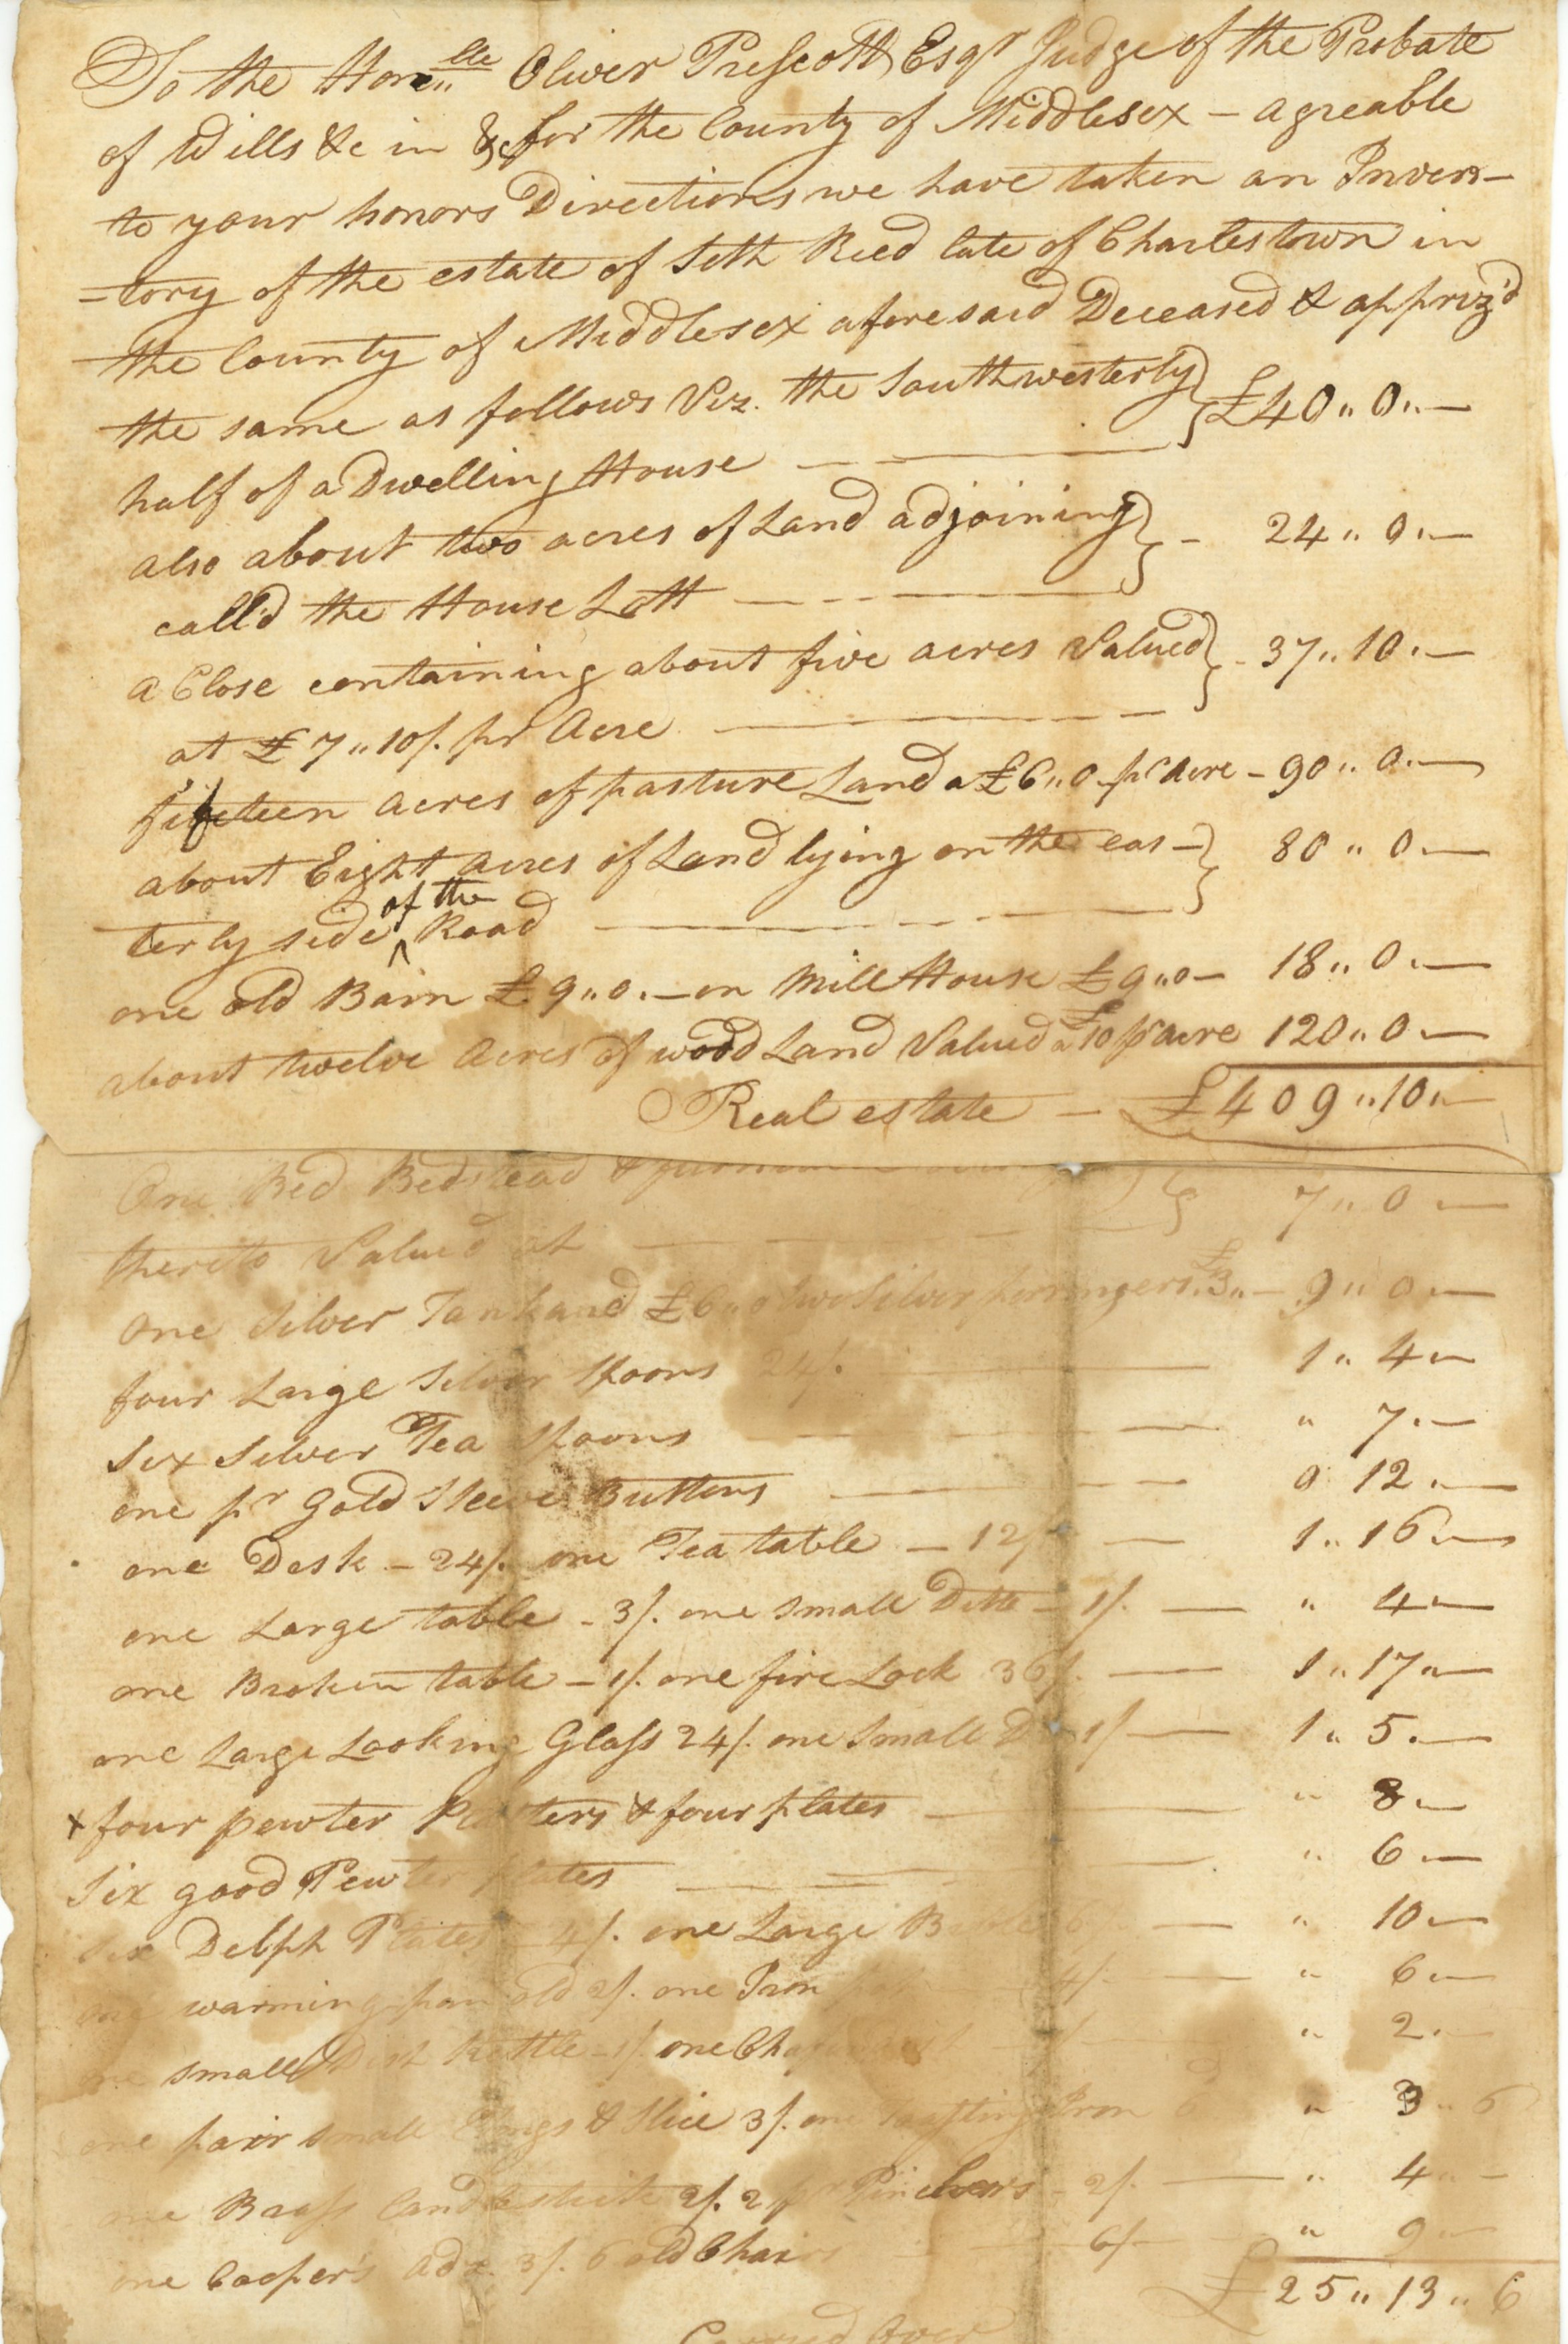 To the Hon.ble Oliver Prescott Esqr Judge of the Probate
of Wills &c in & for the County of Middlesex – agreable
to your honors Directions we have taken an Inven-
-tory of the estate of Seth Reed late of Charlestown in
the County of Middlesex aforesaid Deceased & appriz'd
the same as follows Viz. the Southwesterly
half of a Dwelling House — £40 „ 0 „ —
also about two acres of Land adjoining
call'd the House Lott — 24 „ 0 „ —
a Close containing about five acres Valued
at £7 „ 10/. pr Acre — 37 „ 10 . —
fifteen acres of pasture Land a £6 „ 0 pr Acre – 90 „ 0 . —
about Eight acres of Land lying on the eas-
terly side of the Road — 80 „ 0 . —
one old Barn £9 „ 0 . — on Mill House £9 „ 0 – 18 „ 0 . —
about twelve acres of wood Land Valued a £10 pr acre 120 „ 0 . —
Real estate — £409 „ 10 „ —
One Bed Bedstead &
thereto Valued at — 7 „ 0 . —
One Silver Tankard £6 „ 0 two Silver porringers £3 „ – 9 „ 0 . —
four Large Silver Spoons 24/. — 1 „ 4 —
Six Silver Tea Spoons — „ 7 . —
one pr Gold Sleeve Buttons — 0 12 . —
one Desk – 24/. one Tea table – 12/ — 1 „ 16 —
one Large table – 3/. one small Ditto – 1/. — „ 4 —
one Broken table – 1/. one fire Lock 36/. — 1 „ 17 „ —
one Large Looking Glass 24/. one Small Do 1/ — 1 „ 5 . —
+ four pewter Platters & four plates — „ 8 . —
Six good Pewter plates — „ 6 . —
Six Delph Plates – 4/. one Large 6/ — „ 10 —
one warming pan old 2/. one Iron 4/. — „ 6 —
one small Dish Kettle – 1/. one — „ 2 . —
one pair small Tongs & Slice 3/. one Toasting Iron 6d „ 3 „ 6
one Brass Candlestick 2/. 2 pr Pinchers – 2/. — „ 4 „ –
one Cooper's Adz 3/. 6 old Chairs 6/ — „ 9 —
£25 „ 13 „ 6
Carried Over